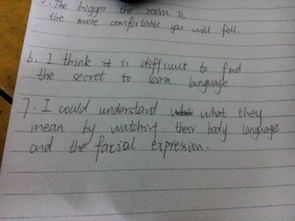 5. The bigger the room is
the more comfortable you will fell.
6. I think it is difficult to find
the secret to learn language
7. I could understand what they
mean by watching their body language
and the facial expression.